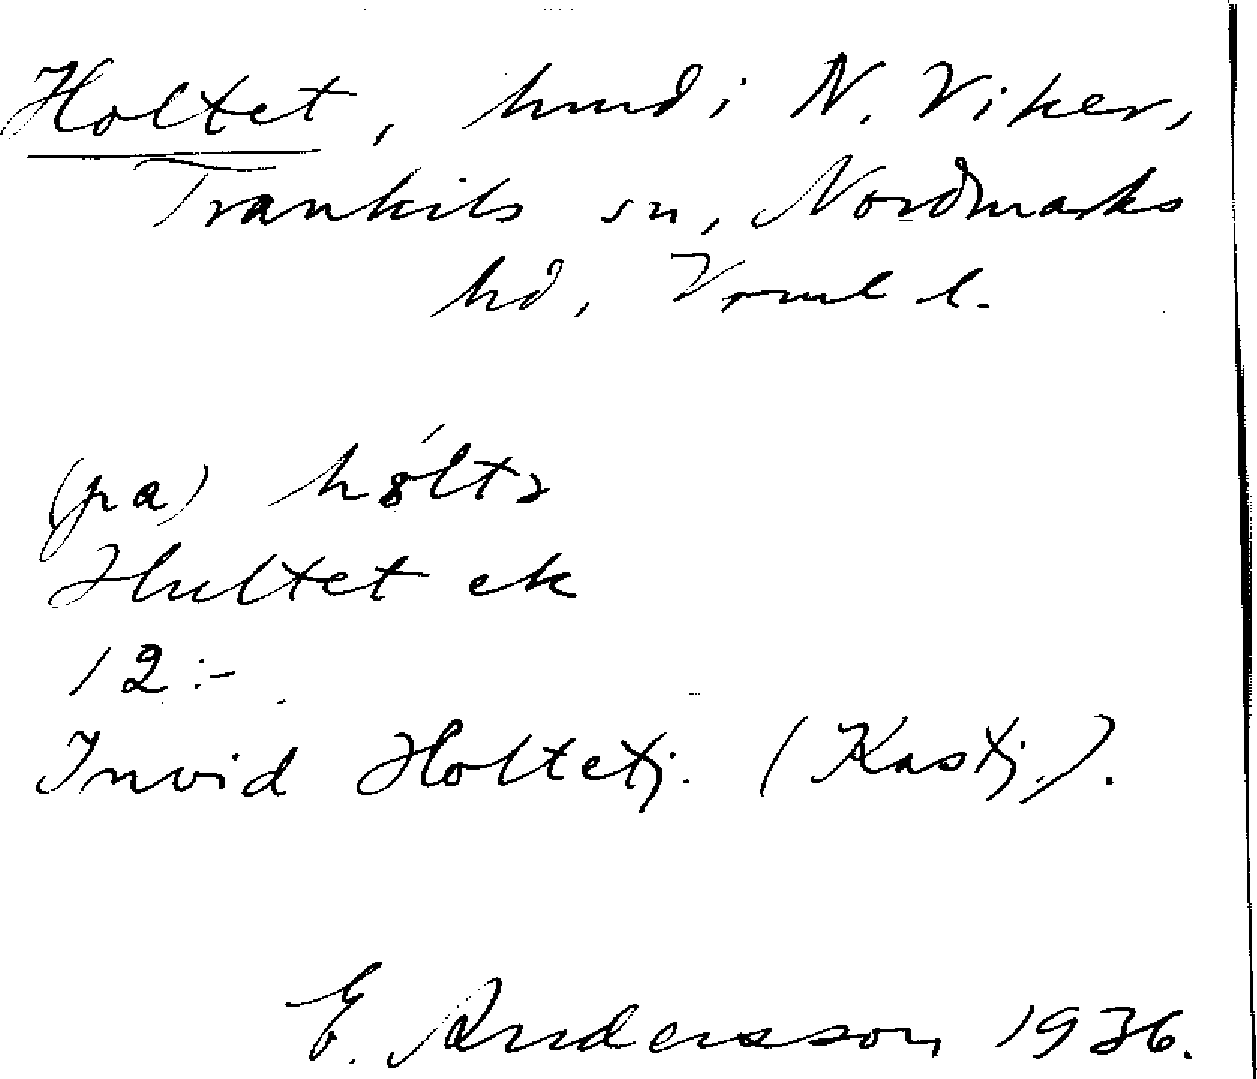 Holtet, hmd i N. Viker,
Trankils sn, Nordmarks
hd, Vrml l.
(pa) hòltə
Hultet ek
12:-
Invid Holtetj. (Kastj.).
E. Andersson 1936.